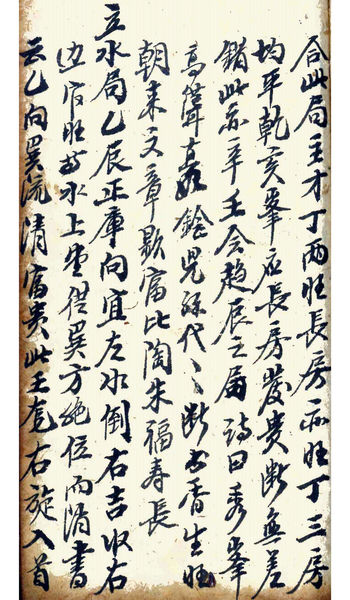 合此局主才丁両旺長房亦旺丁三房
均平乾亥峯应長房發贵断無差
錯此亦辛壬会趋辰之局詩曰秀峯
高聳喜孫代〻断书香生旺
朝来文章顕富比陶朱福寿長
立水局乙辰正庫向宜左水倒右吉收右
边官旺故水上堂従巽方絶位而消書
云乙向巽流清富贵此主龙右旋入首